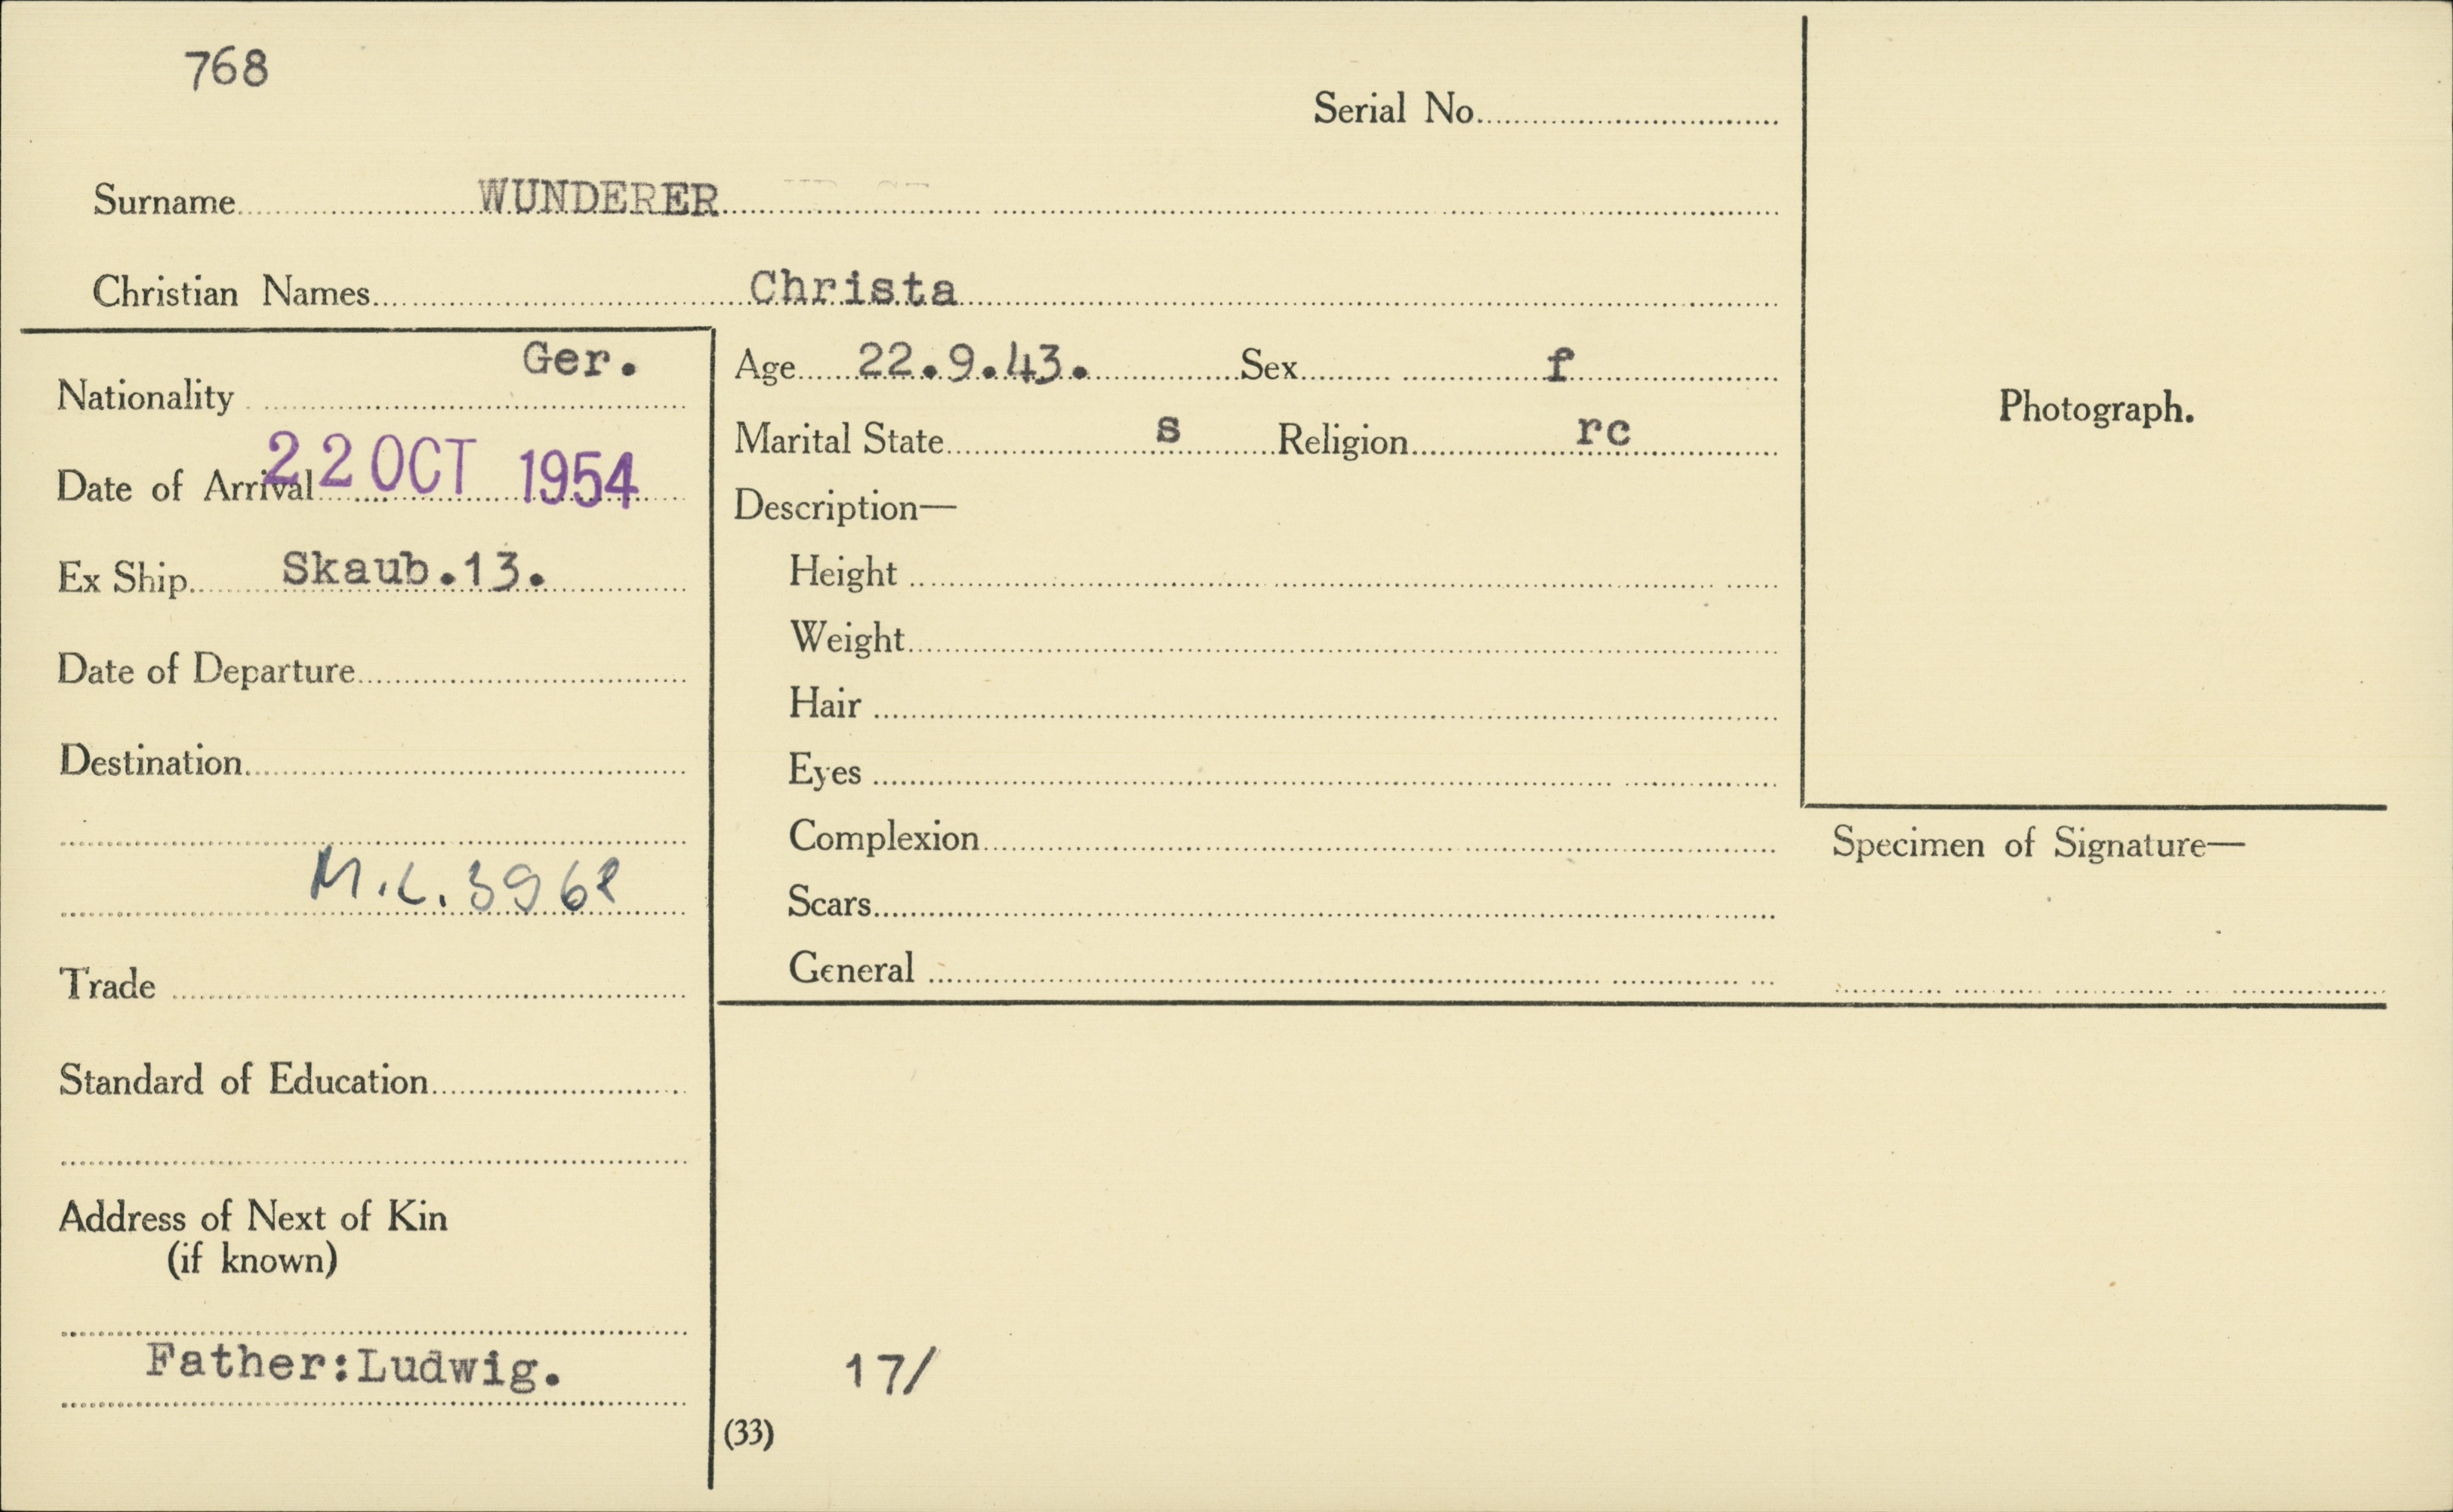 768
Serial No.
Surname WUNDERER
Christian Names Christa
Nationality Ger.
Date of Arrival 22 OCT 1954
Ex Ship Skaub.13.
Date of Departure
Destination
M.L. 3962
Trade
Standard of Education
Address of Next of Kin
(if known)
Father:Ludwig.
Age 22.9.43. Sex f
Marital State s Religion rc
Description—
Height
Weight
Hair
Eyes
Complexion
Scars
General
Photograph.
Specimen of Signature—
17/
(33)